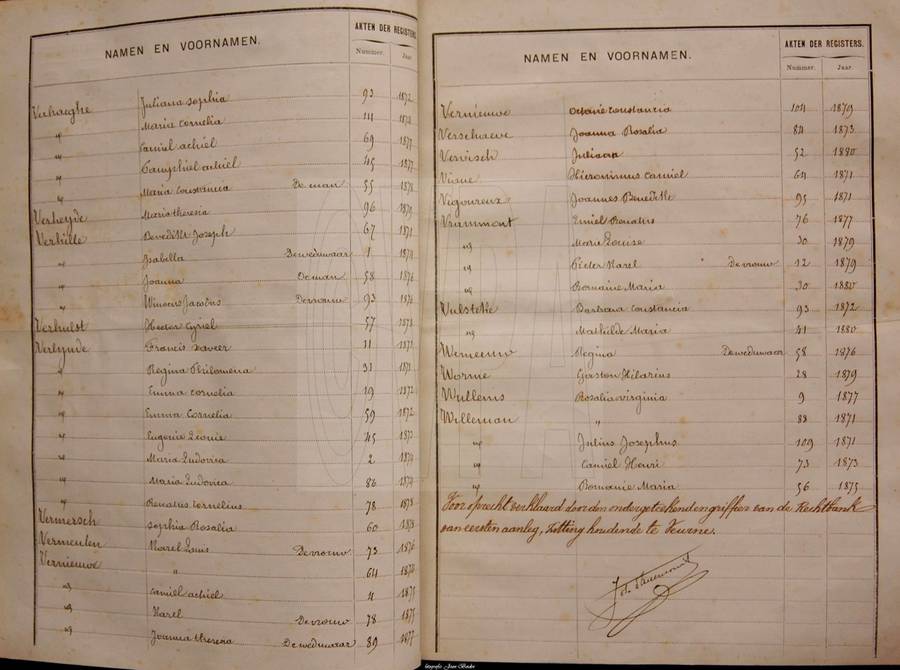 NAMEN EN VOORNAMEN. AKTEN DER REGISTERS
Nummer. Jaar.
Verhaeghe Juliana Sophia 93 1872
" Maria Cornelia 111
" Camiel achiel 69 1877
" Pamphiel achiel 45 1877
" Maria Constancia De man 55 1878
Verheyde Maria theresia 96 1879
Verhille Benedikt Joseph 67 1871
" Isabella De weduwaar 1
" Joanna De man 58 1876
" Vincens Jacobus De vrouw 93 1876
Verhulst Hector Cyriel 57 1873
Verlynde Francis Xaveer 11 1871
" Regina Philomena 31 1871
" Emma Cornelia 19 1872
" Emma Cornelia 59 1872
" Eugenie Leonie 45 1873
" Maria Ludovica 2 1874
" Maria Ludovica 86 1874
" Renatus Cornelius 78 1878
Vermersch Sophia Rosalia 60 1878
Vermeulen Karel Louis De vrouw 73 1876
Vernieuwe " 64
" Camiel achiel 4 1875
" Karel De vrouw 78 1875
" Joanna theresia De weduwaar 89 1877
NAMEN EN VOORNAMEN. AKTEN DER REGISTERS.
Nummer. Jaar.
Vernieuwe Octavie Constancia 104 1879
Verschaeve Joanna Rosalia 84 1873
Vervisch Juliaan 52 1880
Vieme Hieronimus Camiel 64 1871
Vigoureux Joannes Benedikte 95 1871
Vrammont Emiel Renatus 76 1877
" Marie Louise 30 1879
" Pieter Karel De vrouw 12 1879
" Romaine Maria 30 1880
Vulsteke Barbara Constancia 93 1872
" Mathilde Maria 41 1880
Wemeeuw Regina De weduwaar 58 1876
Worme Gaston Hilarius 28 1879
Wullems Rosalia virginia 9 1877
Willeman " 83 1871
" Julius Josephus 109 1871
" Camiel Henri 73 1873
" Romanie Maria 56 1875
Voor oprecht verklaard door den ondergeteekenden griffier van de Rechtbank
van eersten aanleg, zitting houdende te Veurne.
fotografie Joan Bader